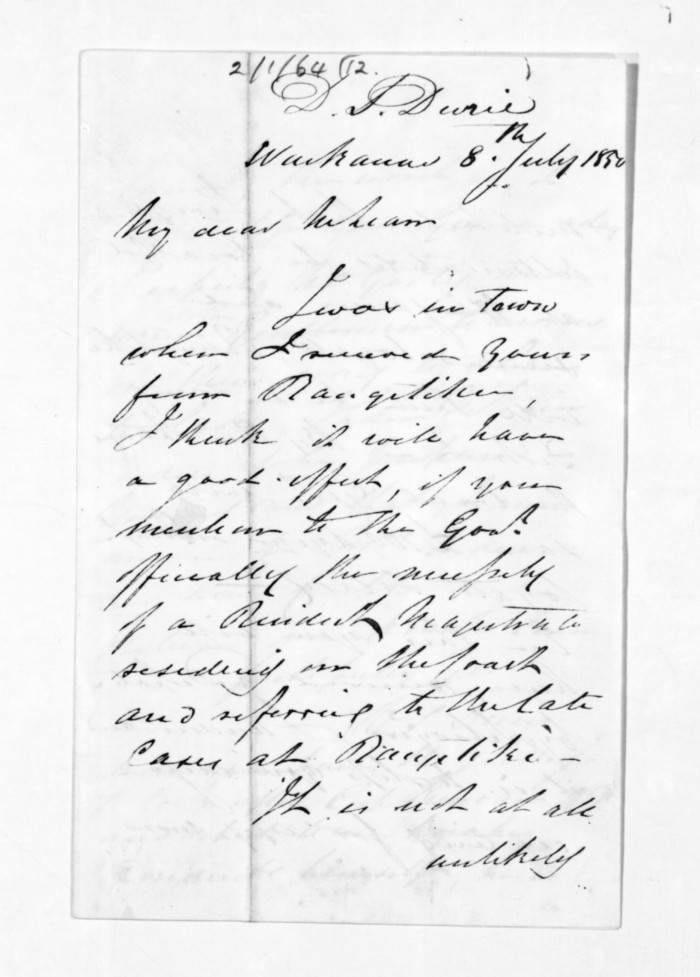 2/1/64 (12.
D. S. Durie
Waikanae 8.th July 1850
My dear McLean
I was in town
when I received yours
from Rangitikei,
I think it will have
a good effect, if you
mention to the Govt.
officially the necessity
of a Resident Magistrate
residing on the Coast
and referring to the late
Cases at Rangitiki -
It is not at all
unlikely